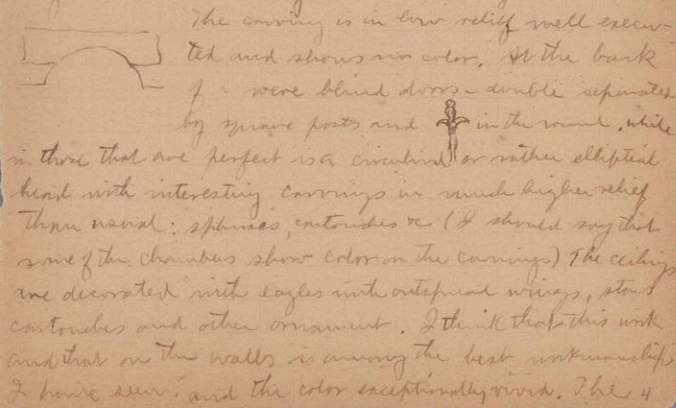 The carving is in low relief well execu-
ted and shows no color. At the back
were blind doors - double separated
by square posts and in the round, while
in those that are perfect is a circular or rather elliptical
head with interesting carvings in much higher relief
than usual: sphinxes, cartouches &c (I should say that
some of the chambers show color on the carvings) The ceilings
are decorated with eagles with outspread wings, stars
cartouches and other ornament. I think that this work
and that on the walls is among the best workmanship
I have seen. and the color exceptionally vivid. The "